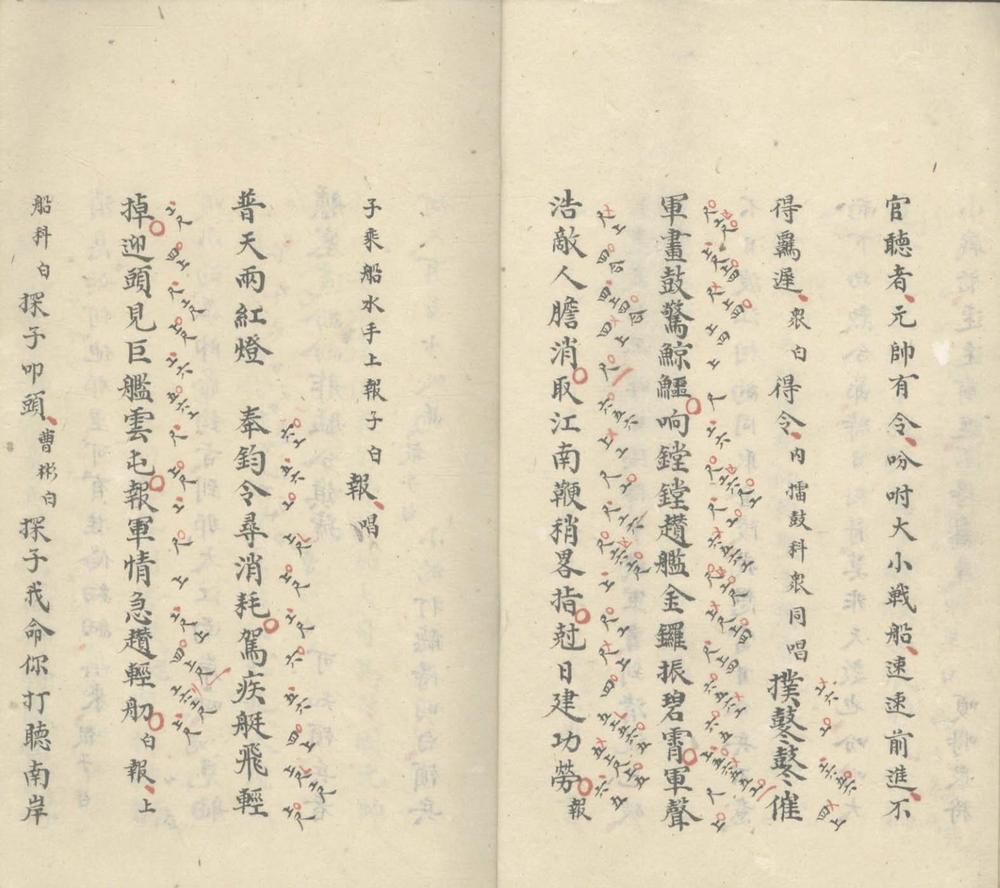 官聽者元帥有令吩咐大小戰船速速前進不
得羈遲衆白得令內擂鼓科衆同唱撲鼕鼕催
軍畫鼓驚鯨鱷响鏜鏜趲艦金鑼振碧霄軍聲
浩敵人膽消取江南鞭稍畧指尅日建功勞報
子乘船水手上報子白報唱
普天雨紅燈 奉鈞令尋消耗駕疾艇飛輕
掉迎頭見巨艦雲屯報軍情急趲輕舠白報上
船科白探子叩頭曹彬白探子我命你打聽南岸